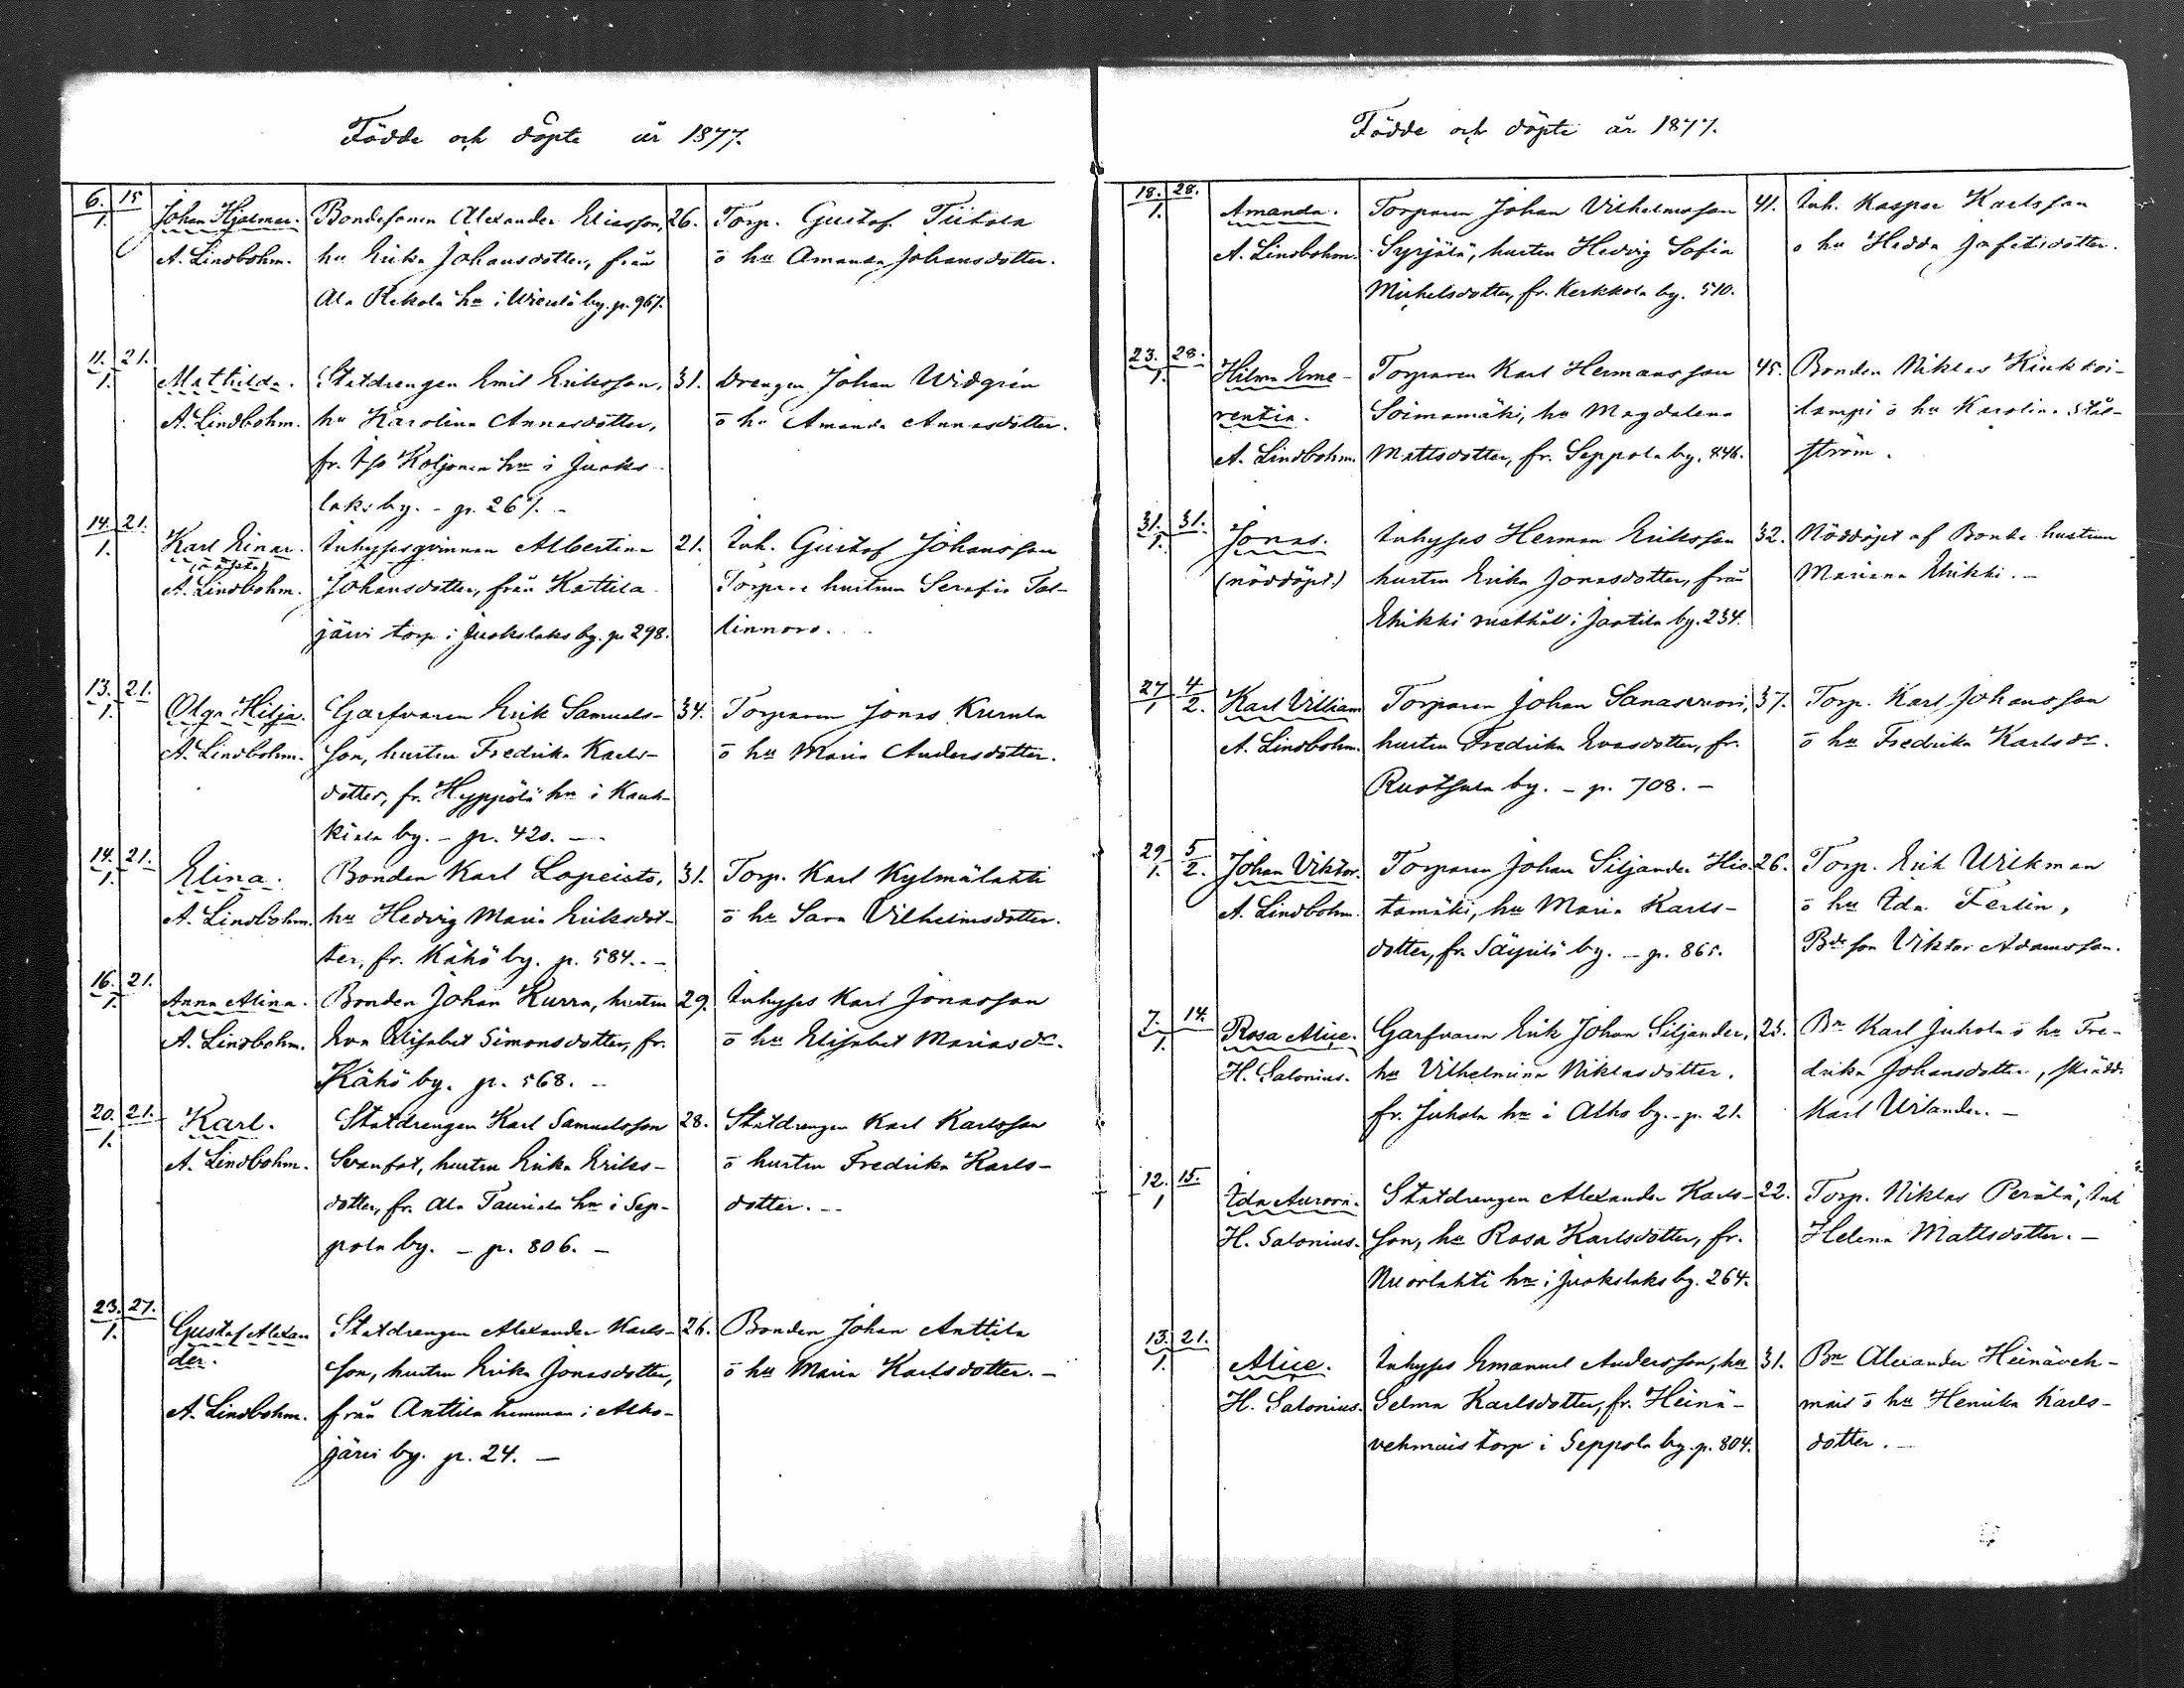 Födde och döpte år 1877.
6. 15
1.
Johan Hjalmar. Bondesonen Alexander Eliasson, 26. Torp. Gustaf Tiitola
A. Lindbohm. hu Erika Johansdotter, från o hu Amanda Johansdotter.
Ala Rekola hn i by. p. 967.
11. 21.
1.
Mathilda. Statdrengen Emil Eriksson, 31. Drengen Johan Widgrén
A. Lindbohm. hu Karolina Annasdotter, o hu Amanda Annasdotter.
fr. Iso Koljonen hn i Juoks-
laks by. - p. 267. -
14. 21.
1.
Karl Einar. Inhysesqvinnan Albertina 21. Inh. Gustaf Johansson
(oägta)
A. Lindbohm. Johansdotter, från Kattila- Torpare hustrun Serafia Tal-
järvi torp i Juokslaks by. p. 298. linnoro.
13. 21.
1.
Olga Hilja. Garfvaren Erik Samuels- 34. Torparen Jonas Kurula
A. Lindbohm. son, hustru Fredrika Karls- o hu Maria Andersdotter.
dotter, fr. Hyppölä hn i Kauk-
kiala by. - p. 420. -
14. 21.
1.
Elina. Bonden Karl Lopeisto, 31. Torp. Karl Kylmälahti
A. Lindbohm. hu Hedvig Maria Eriksdot- o hu Sara Vilhelmsdotter.
ter, fr. Kähö by. p. 584. -
16. 21.
1.
Anna Alina. Bonden Johan Kurra, hustru 29. Inhyses Karl Jonasson
A. Lindbohm. Eva Elisabet Simonsdotter, fr. o hu Elisabet Mariasdr.
Kähö by. p. 568. -
20. 21.
1.
Karl. Statdrengen Karl Samuelsson 28. Statdrengen Karl Karlsson
A. Lindbohm. Svanfot, hustru Erika Eriks- o hustru Fredrika Karls-
dotter, fr. Ala Tauriala hn i Sep- dotter. -
pola by. - p. 806. -
23. 27.
1.
Gustaf Alexan Statdrengen Alexander Karls- 26. Bonden Johan Anttila
der. son, hustru Erika Jonasdotter, o hu Maria Karlsdotter. -
A. Lindbohm. från Anttila hemman i Alho-
järvi by. p. 24. -
Födde och döpte år 1877.
18. 28.
1.
Amanda. Torparen Johan Vilhelmsson 41. Inh. Kasper Karlsson
A. Lindbohm. Syrjälä, hustru Hedvig Sofia o hu Hedda Jafetsdotter.
Mickelsdotter, fr. Kerkkola by. 510.
23. 28.
1.
Hilma Eme- Torparen Karl Hermansson 45. Bonden Niklas Kiukkoi-
rentia. Soimamäki, hu Magdalena lampi o hu Karolina Stål-
A. Lindbohm. Mattsdotter, fr. Seppola by. 846. ström.
31. 31.
1.
Jonas. Inhyses Herman Eriksson 32. Nöddöpt af Bonde hustrun
(nöddöpt.) hustru Erika Jonasdotter, från Mariana Uhikki. -
Uhikki rusthåll i Jautila by. 234.
27 4
1 2.
Karl Villiam Torparen Johan Sanasvuori, 37. Torp. Karl Johansson
A. Lindbohm. hustru Fredrika Evasdotter, fr. o hu Fredrika Karlsdr.
Ruotsula by. - p. 708. -
29 5
1. 2.
Johan Viktor. Torparen Johan Siljander Hie- 26. Torp. Erik Wirkman
A. Lindbohm. tamäki, hu Maria Karls- o hu Ida Ferlin,
dotter, fr. by. - p. 865. Bde son Viktor Adamsson.
7. 14.
1.
Rosa Alice. Garfvaren Erik Johan Siljander, 23. Bn Karl Juhola o hu Fre-
H. Salonius. hu Vilhelmina Niklasdotter. drika Johansdotter, skrädd.
fr. Juhola hn i Alho by. - p. 21. Karl Urlander. -
12. 15.
1
Ida Aurora. Statdrengen Alexander Karls- 22. Torp. Niklas Perälä, Inh
H. Salonius. son, hu Rosa Karlsdotter, fr. Helena Mattsdotter. -
Nuorlahti hn i Juokslaks by. 264.
13. 21.
1.
Alice. Inhyses Emanuel Andersson, hu 31. Bn Alexander Heinäveh-
H. Salonius. Selma Karlsdotter, fr. Heinä- mais o hu Henrika Karls-
vehmais torp i Seppola by. p. 804. dotter. -